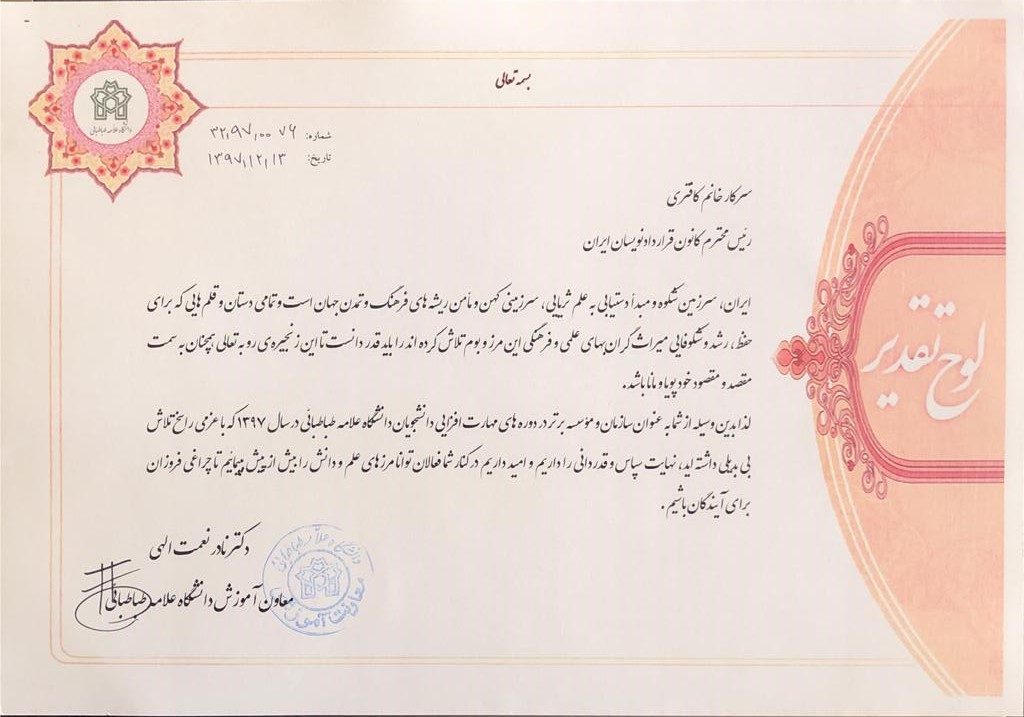 بسمه تعالی
دانشگاه علامه طباطبائی
شماره: ۳۲,۹۷,۰۰۷۶
تاریخ: ۱۳۹۷,۱۲,۱۳
سرکار خانم کافتری
رئیس محترم کانون قراردادنویسان ایران
لوح تقدیر
ایران، سرزمین شکوه و مبدأ دستیابی به علم ثریایی، سرزمینی کهن و مأمن ریشه های فرهنگ و تمدن جهان است و تمامی دستان و قلم هایی که برای
حفظ، رشد و شکوفایی میراث گران بهای علمی و فرهنگی این مرز و بوم تلاش کرده اند را باید قدر دانست تا این زنجیره ی رو به تعالی همچنان به سمت
مقصد و مقصود خود پویا و مانا باشد.
لذا بدین وسیله از شما به عنوان سازمان و مؤسسه برتر در دوره های مهارت افزایی دانشجویان دانشگاه علامه طباطبائی در سال ۱۳۹۷ که با عزمی راسخ تلاش
بی بدیلی داشته اید، نهایت سپاس و قدردانی را داریم و امید داریم در کنار شما فعالان توانا مرزهای علم و دانش را بیش از پیش بپیمائیم تا چراغی فروزان
برای آیندگان باشیم.
دکتر نادر نعمت الهی
معاون آموزش دانشگاه علامه طباطبائی
دانشگاه علامه طباطبائی
معاونت آموزشی